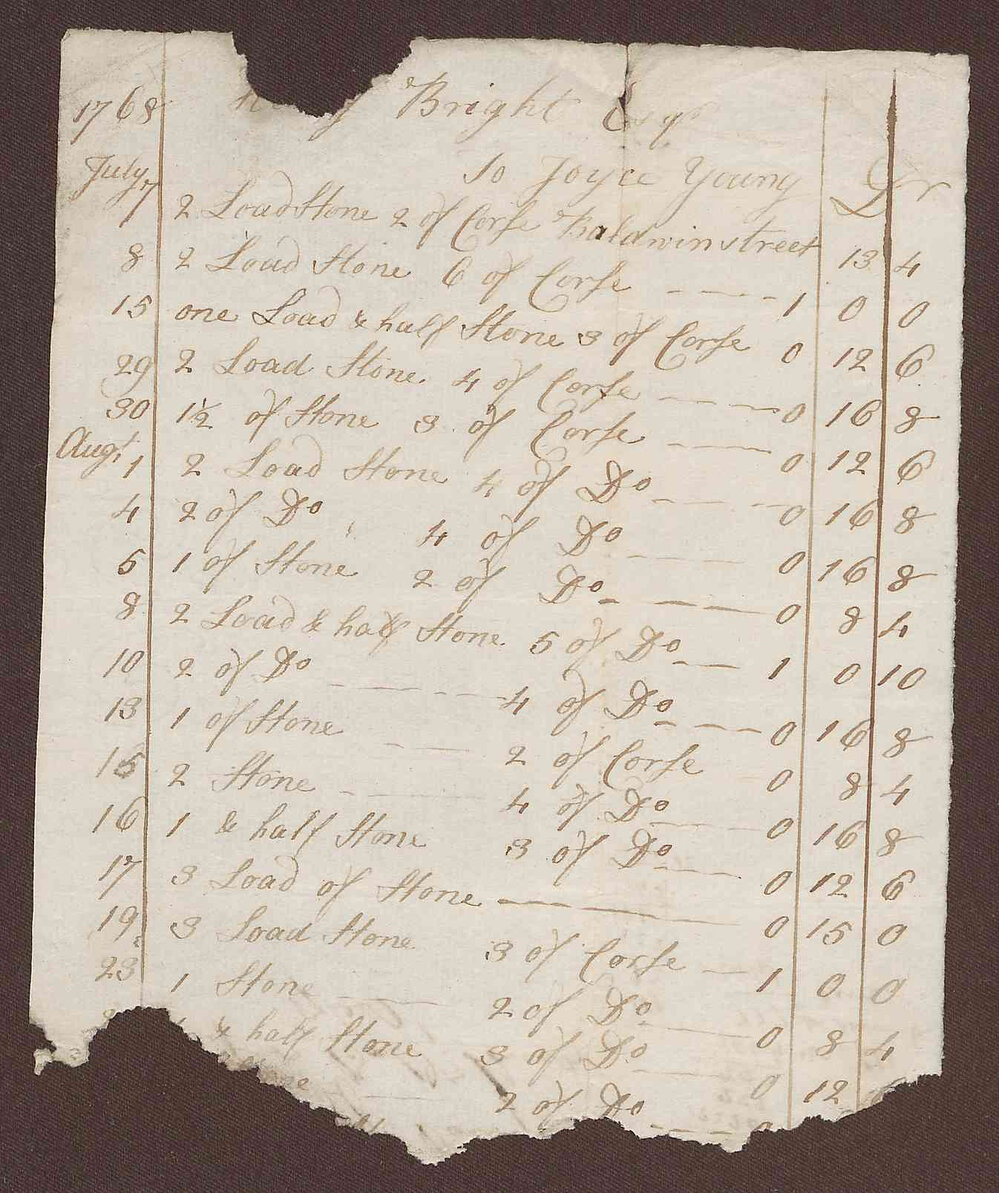 1768 Bright Esqr
To Joyce Young Dr
July 7 2 Load Stone 2 of Corse Baldwinstreet 13 4
8 2 Load Stone 6 of Corse 1 0 0
15 one Load & half Stone 3 of Corse 0 12 6
29 2 Load Stone 4 of Corse 0 16 8
30 1½ of Stone 3 of Corse 0 12 6
Augt 1 2 Load Stone 4 of Do 0 16 8
4 2 of Do 4 of Do 0 16 8
5 1 of Stone 2 of Do 0 8 4
8 2 Load & half Stone 5 of Do 1 0 10
10 2 of Do 4 of Do 0 16 8
13 1 of Stone 2 of Corse 0 8 4
15 2 Stone 4 of Do 0 16 8
16 1 & half Stone 3 of Do 0 12 6
17 3 Load of Stone 0 15 0
19 3 Load Stone 3 of Corse 1 0 0
23 1 Stone 2 of Do 0 8 4
& half Stone 3 of Do 0 12
2 of Do